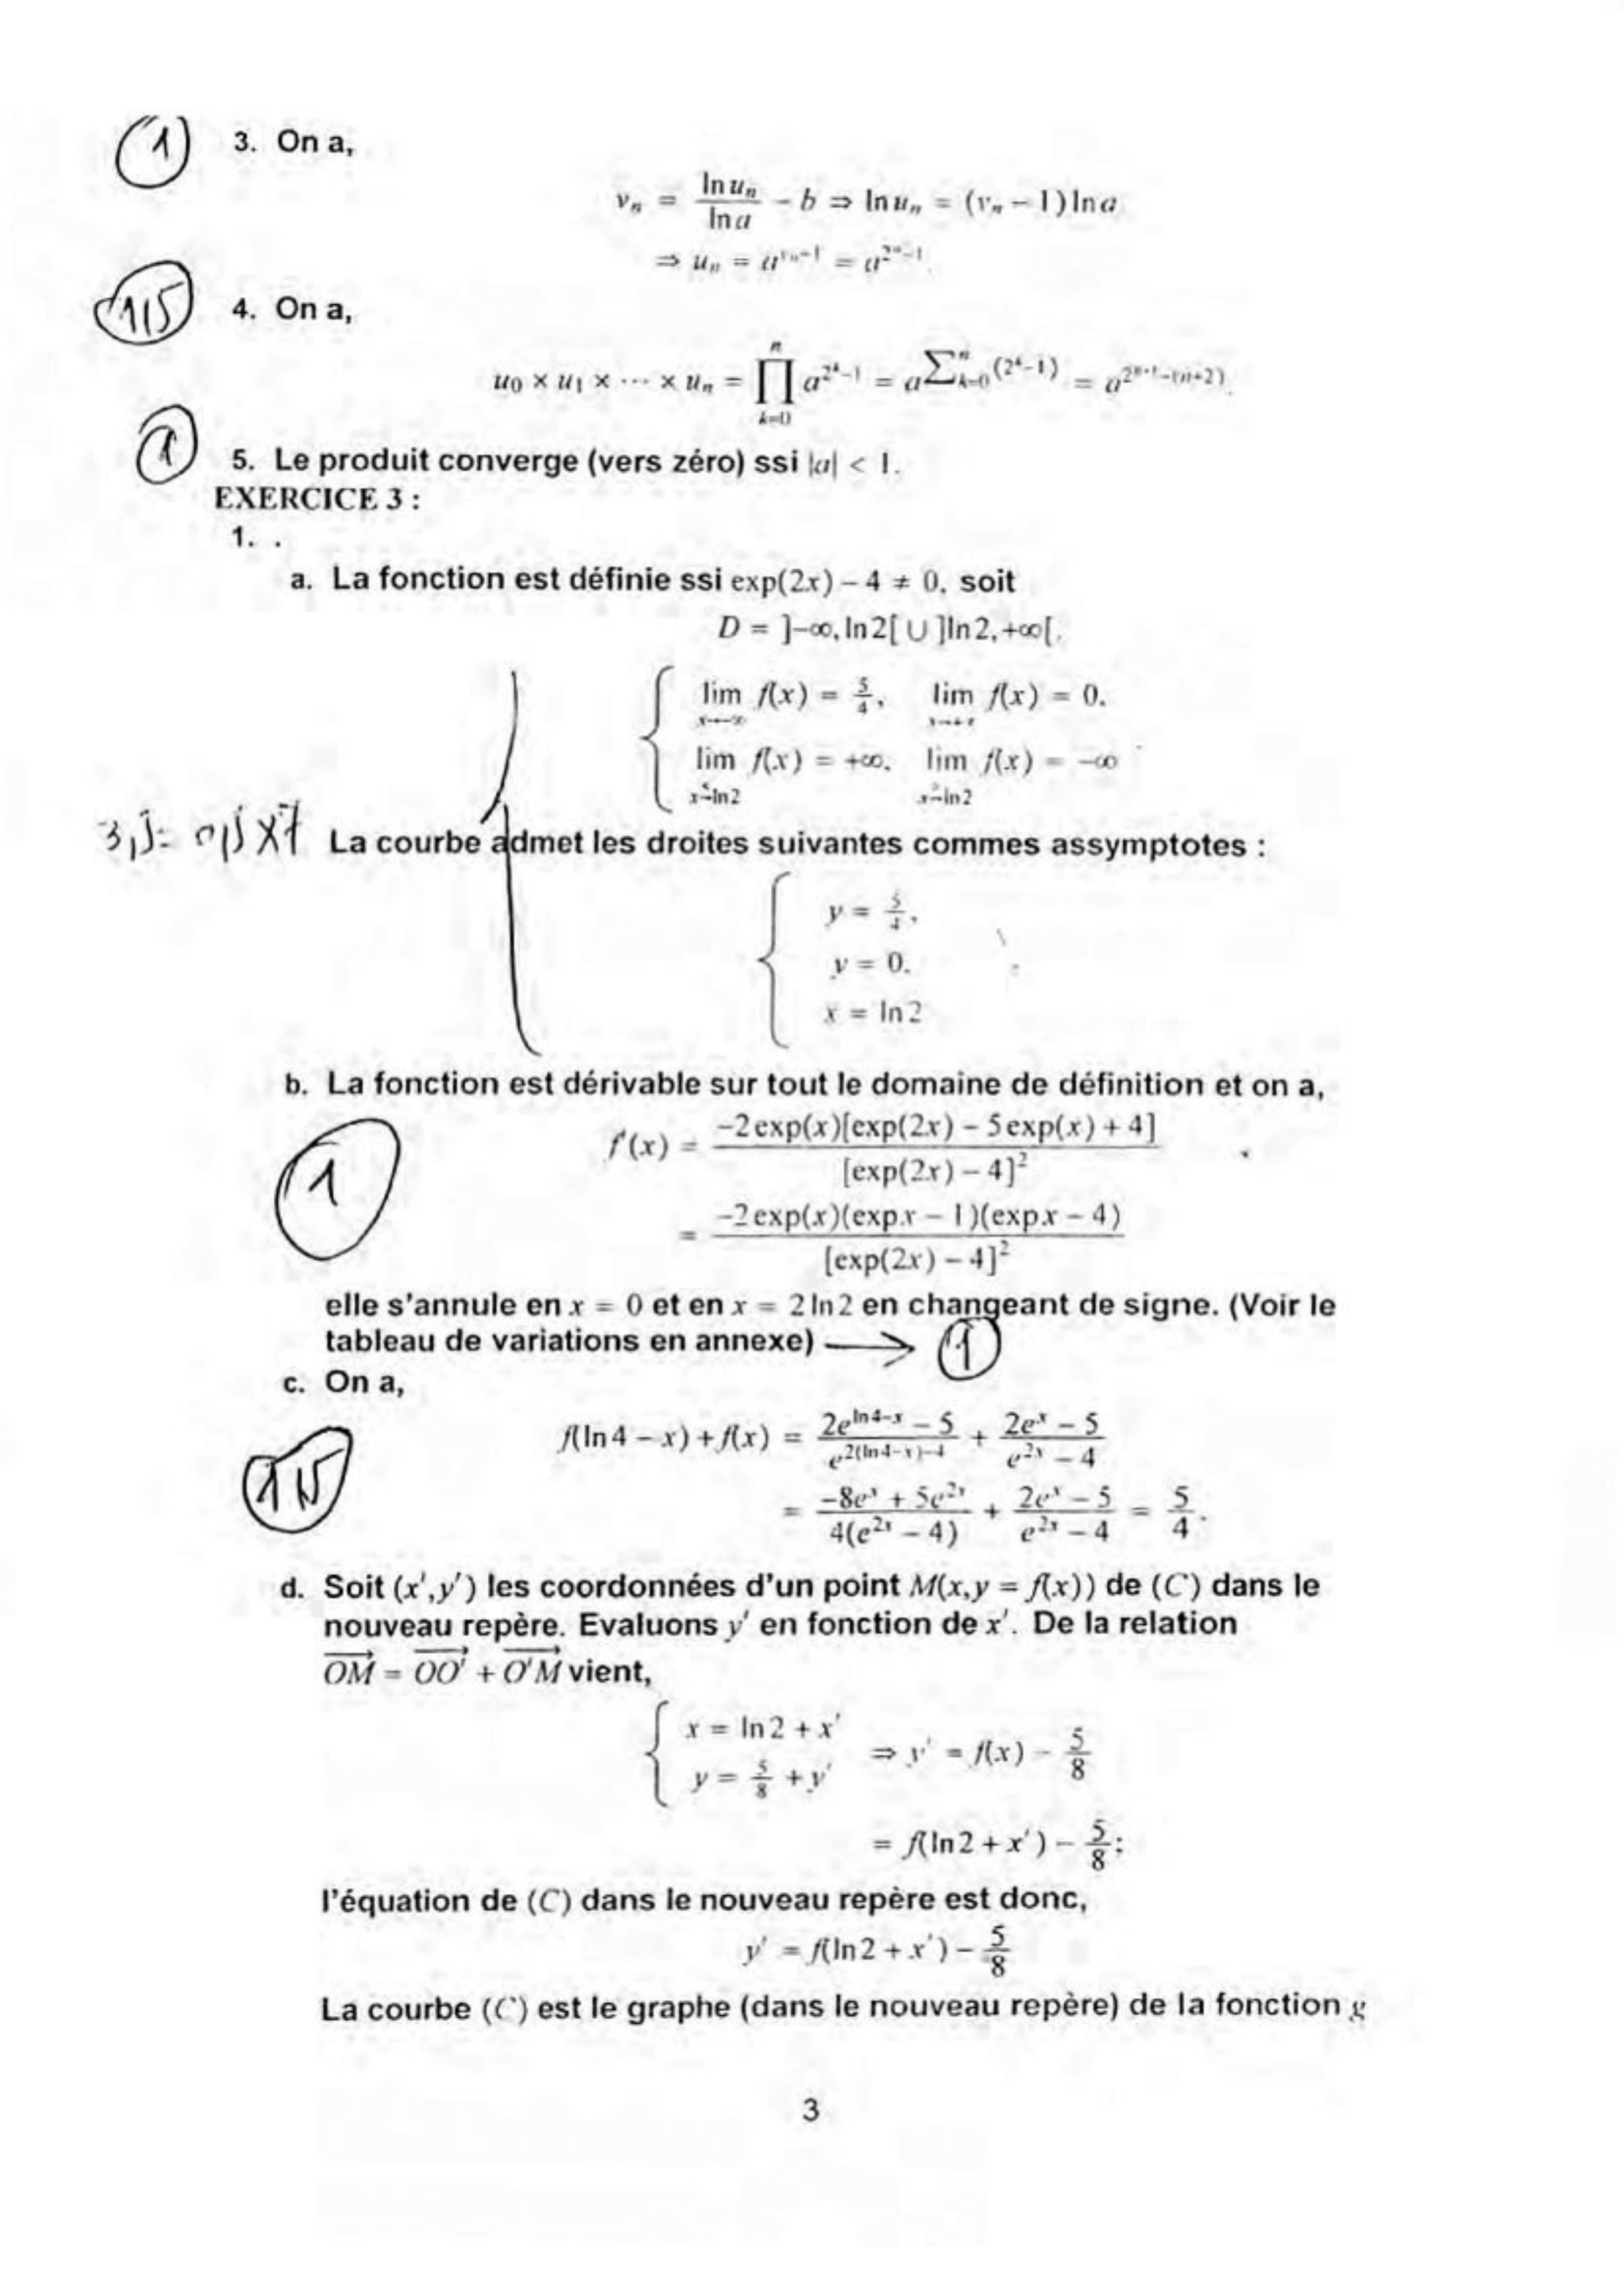 (1) 3. On a,
vₙ = ln uₙ / ln a − b ⇒ ln uₙ = (vₙ − 1) ln a
⇒ uₙ = a^(vₙ−1) = a^(2ⁿ−1).
(1,5) 4. On a,
u₀ × u₁ × ⋯ × uₙ = ∏_{k=0}^{n} a^(2^k−1) = a^(∑_{k=0}^{n}(2^k−1)) = a^(2^(n+1)−(n+2)).
(1) 5. Le produit converge (vers zéro) ssi |a| < 1.
EXERCICE 3 :
1. .
a. La fonction est définie ssi exp(2x) − 4 ≠ 0, soit
D = ]−∞, ln 2[ ∪ ]ln 2, +∞[.
lim_{x→−∞} f(x) = 5/4, lim_{x→+∞} f(x) = 0.
lim_{x→ln 2, <} f(x) = +∞, lim_{x→ln 2, >} f(x) = −∞
3,5 = 0,5 × 7 La courbe admet les droites suivantes commes assymptotes :
y = 5/4,
y = 0.
x = ln 2
b. La fonction est dérivable sur tout le domaine de définition et on a,
f'(x) = −2 exp(x)[exp(2x) − 5 exp(x) + 4] / [exp(2x) − 4]²
(1)
= −2 exp(x)(exp x − 1)(exp x − 4) / [exp(2x) − 4]²
elle s'annule en x = 0 et en x = 2 ln 2 en changeant de signe. (Voir le
tableau de variations en annexe) → (1)
c. On a,
f(ln 4 − x) + f(x) = (2e^(ln 4−x) − 5) / e^(2(ln 4−x)−4) + (2e^x − 5) / (e^(2x) − 4)
(1,5)
= (−8e^x + 5e^(2x)) / 4(e^(2x) − 4) + (2e^x − 5) / (e^(2x) − 4) = 5/4.
d. Soit (x',y') les coordonnées d'un point M(x,y = f(x)) de (C) dans le
nouveau repère. Evaluons y' en fonction de x'. De la relation
OM = OO' + O'M vient,
x = ln 2 + x'
y = 5/8 + y' ⇒ y' = f(x) − 5/8
= f(ln 2 + x') − 5/8 ;
l'équation de (C) dans le nouveau repère est donc,
y' = f(ln 2 + x') − 5/8
La courbe (C) est le graphe (dans le nouveau repère) de la fonction g
3